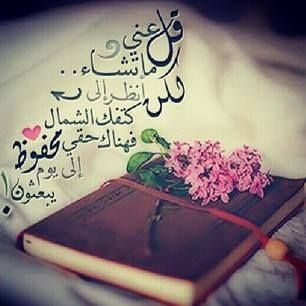 قل عني
ما تشاء ..
لكن انظر إلى
كتفك الشمال
فهناك حقي محفوظ
إلى يوم
يبعثون !